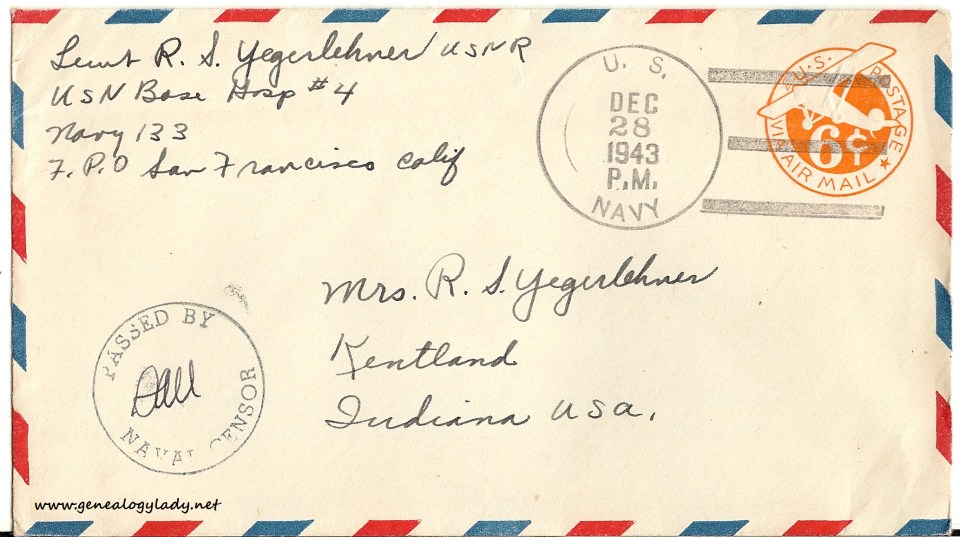 Lieut R. S. Yegerlehner USNR
USN Base Hosp #4
Navy 133
F. P. O San Francisco Calif
U. S.
DEC
28
1943
P.M.
NAVY
U.S. POSTAGE
6¢
VIA AIR MAIL
Mrs. R. S. Yegerlehner
Kentland
Indiana USA.
PASSED BY
NAVAL CENSOR
www.genealogylady.net